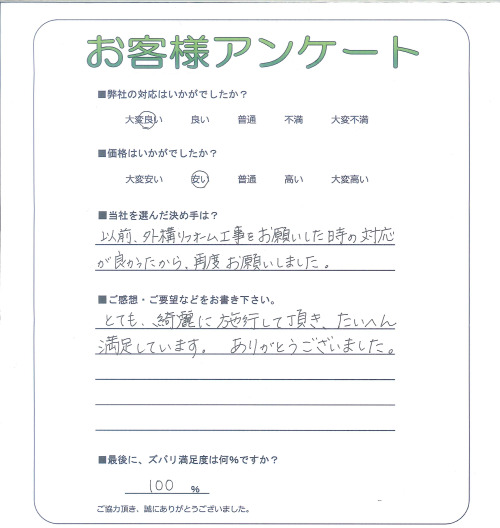 お客様アンケート
■弊社の対応はいかがでしたか？
大変良い 良い 普通 不満 大変不満
■価格はいかがでしたか？
大変安い 安い 普通 高い 大変高い
■当社を選んだ決め手は？
以前、外構リフォーム工事をお願いした時の対応
が良かったから、再度お願いしました。
■ご感想・ご要望などをお書き下さい。
とても、綺麗に施行して頂き、たいへん
満足しています。 ありがとうございました。
■最後に、ズバリ満足度は何％ですか？
100 ％
ご協力頂き、誠にありがとうございました。